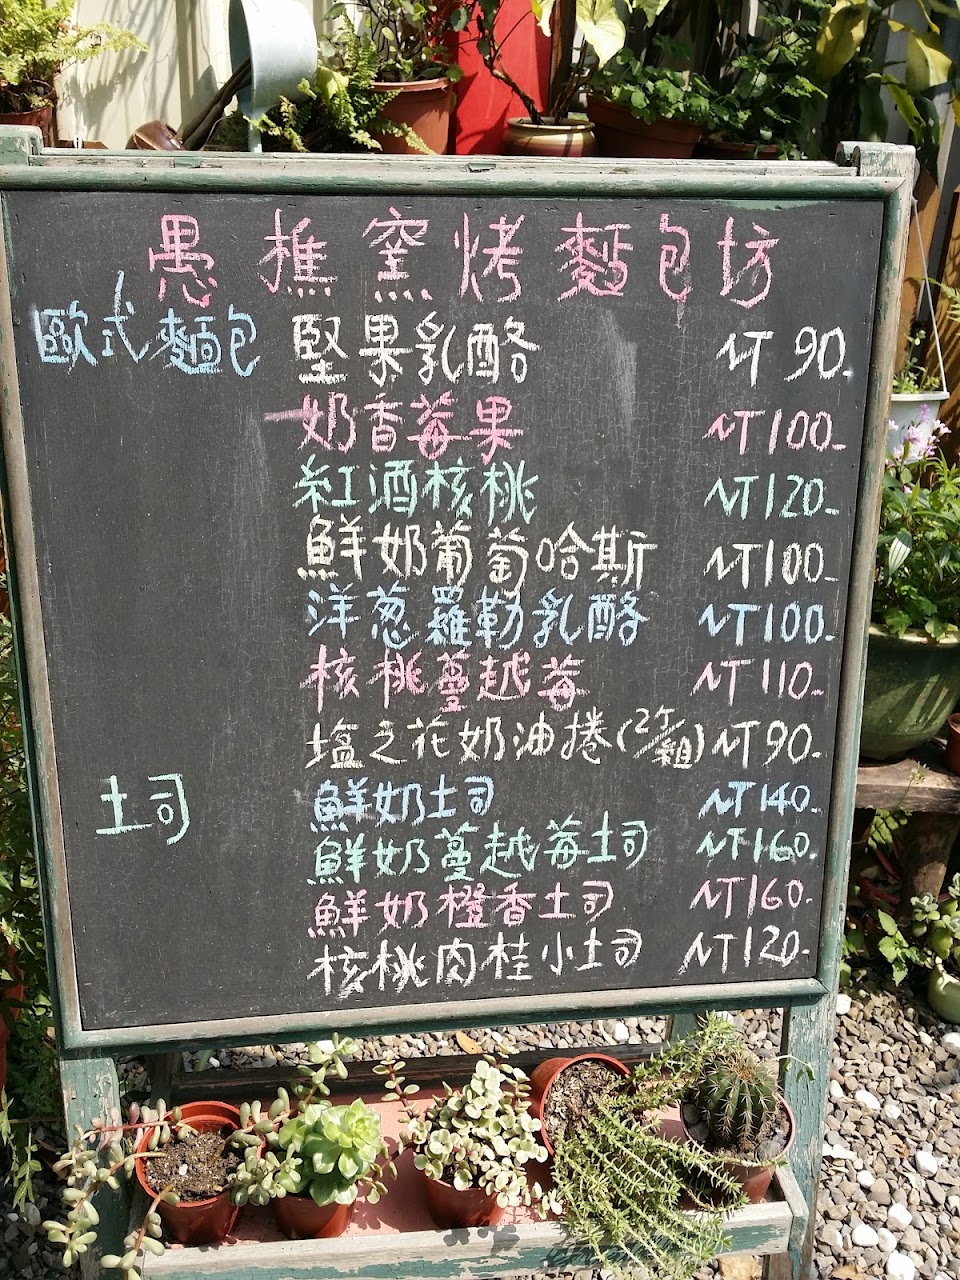 愚樵窯烤麵包坊
歐式麵包 堅果乳酪 NT 90.
奶香莓果 NT100-
紅酒核桃 NT120-
鮮奶葡萄哈斯 NT100-
洋葱羅勒乳酪 NT100-
核桃蔓越莓 NT110-
塩之花奶油捲(2ケ/組) NT90-
土司 鮮奶土司 NT140-
鮮奶蔓越莓土司 NT160-
鮮奶橙香土司 NT160-
核桃肉桂小土司 NT120-